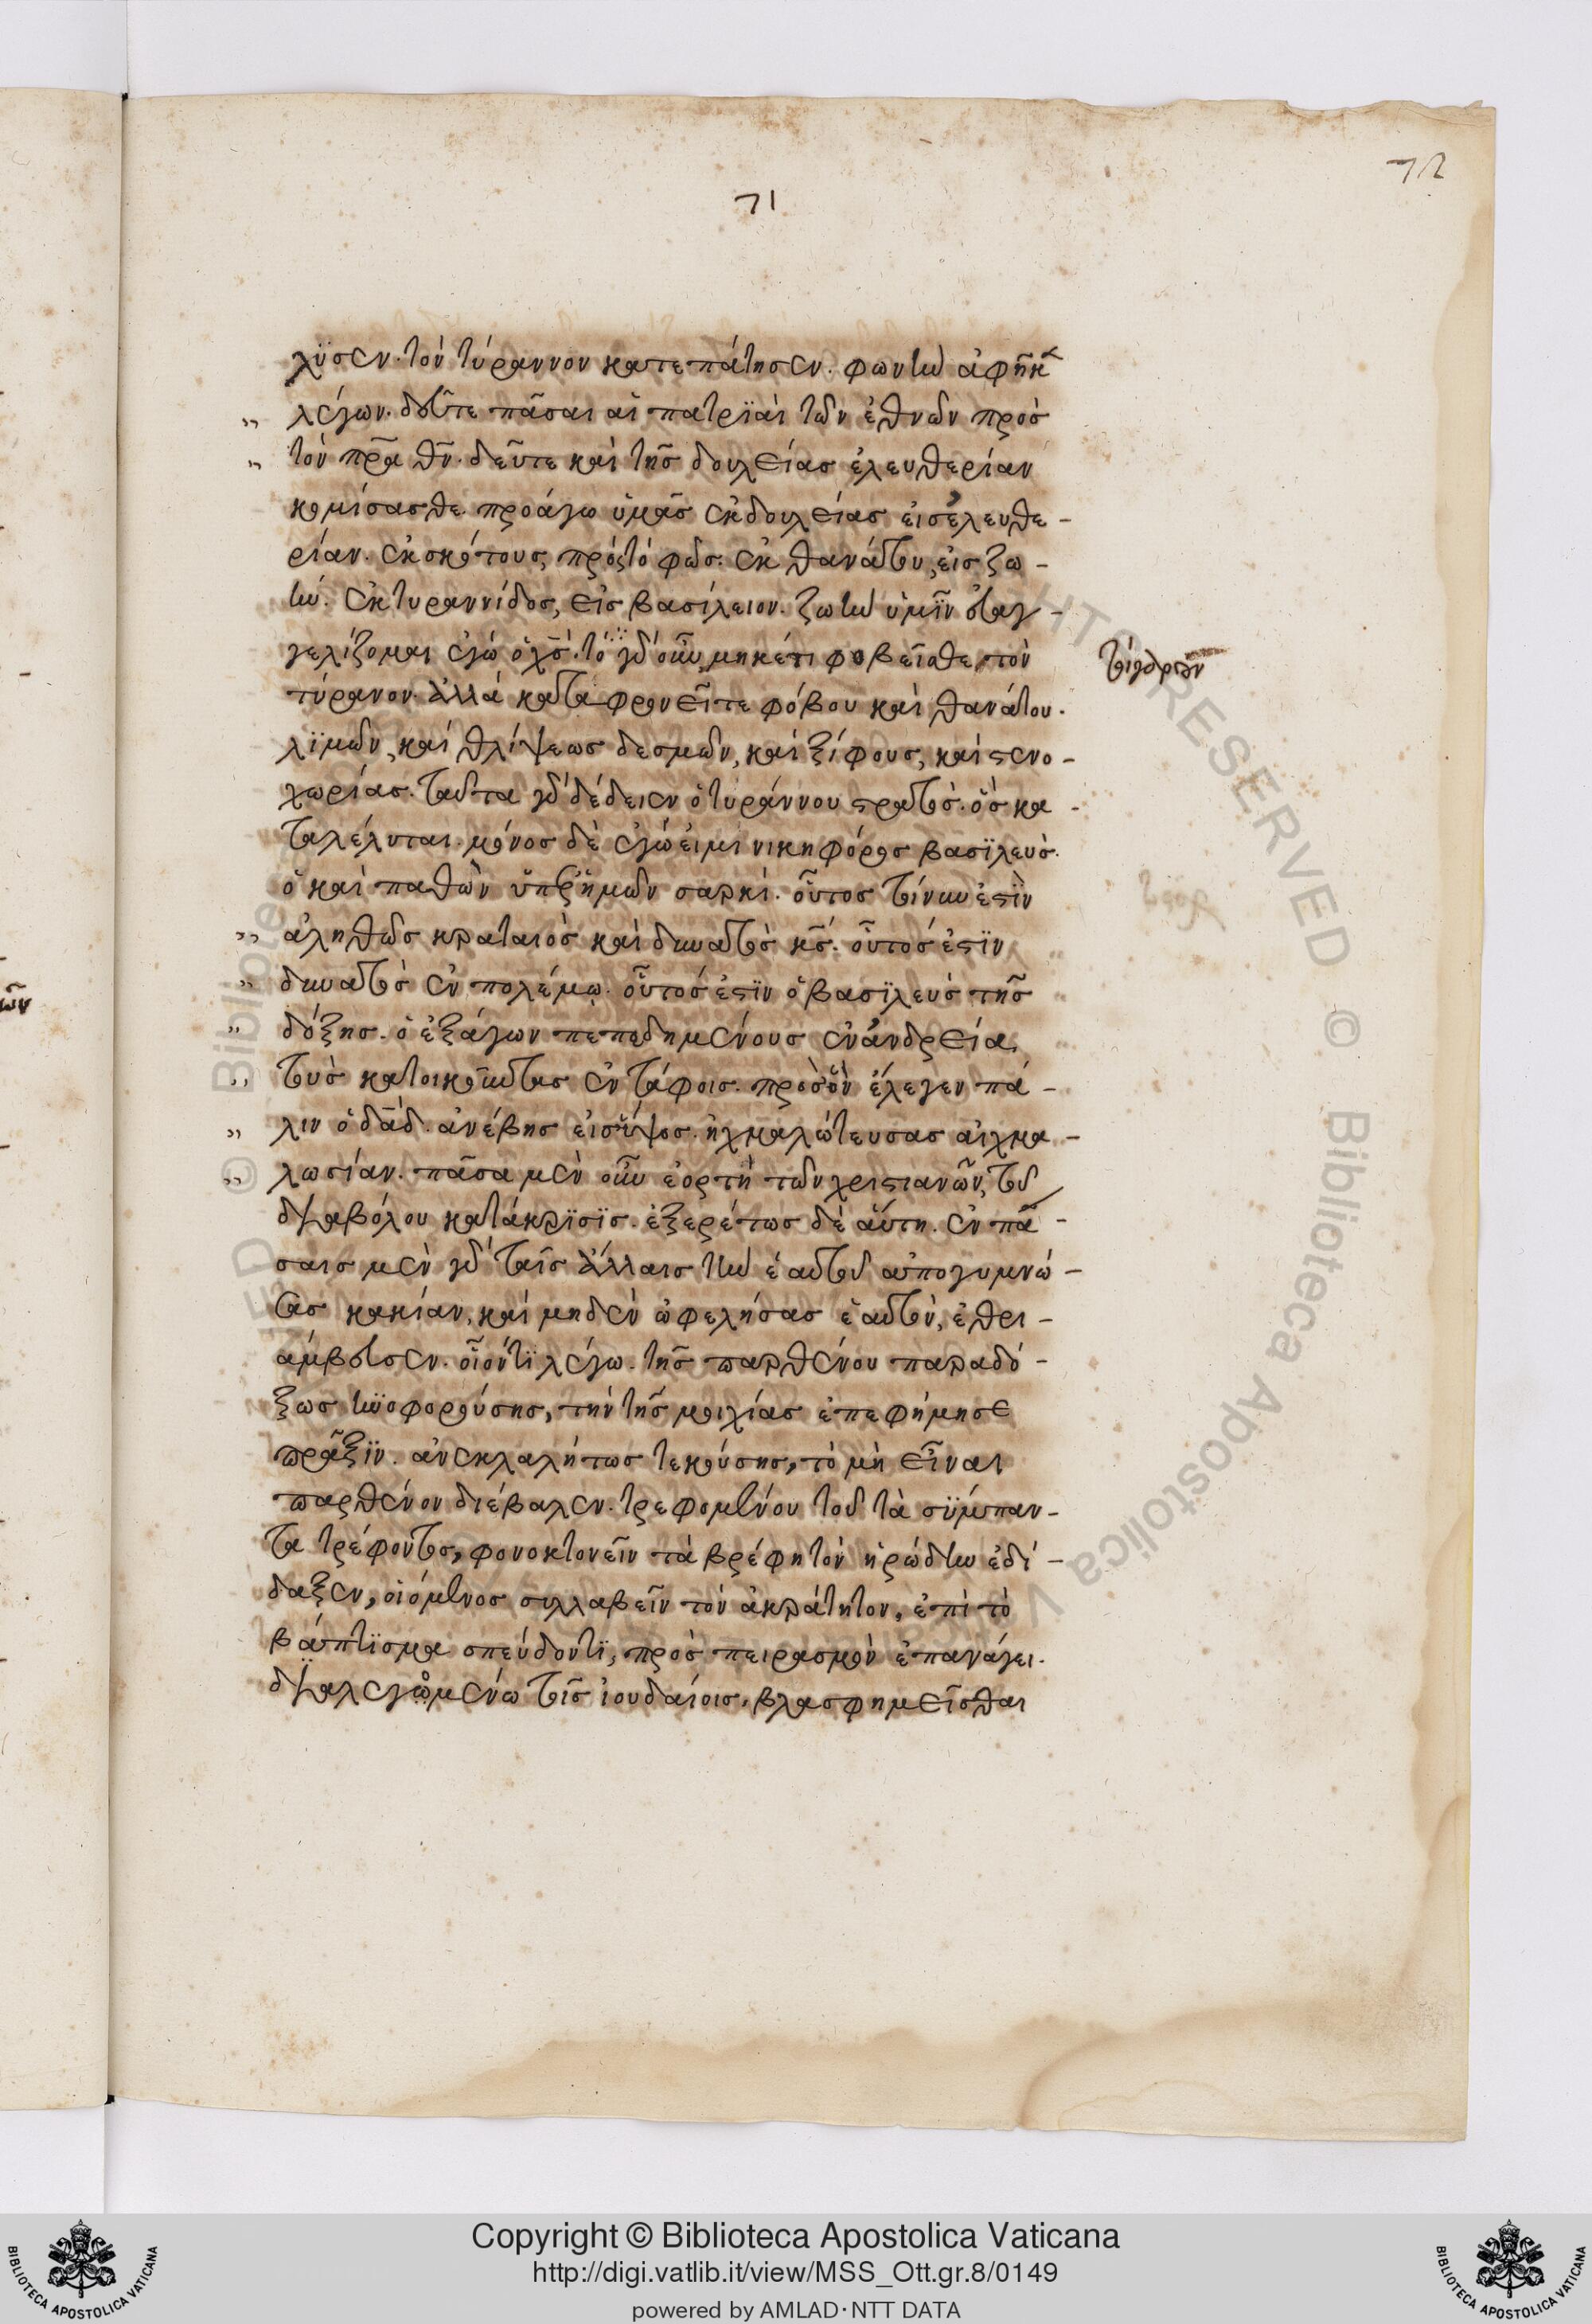 72
71
λῦσεν. τὸν τύραννον κατεπάτησεν. φωνὴν ἀφῆκε
λέγων. δεῦτε πᾶσαι αἱ πατριαὶ τῶν ἐθνῶν πρὸς
τὸν πρα θν. δεῦτε καὶ τῆς δουλείας ἐλευθερίαν
κομίσασθε. προάγω ὑμᾶς ἐκ δουλείας εἰς ἐλευθε-
ρίαν. ἐκ σκότους, πρὸς τὸ φῶς. ἐκ θανάτου, εἰς ζω-
ήν. ἐκ τυραννίδος, εἰς βασίλειον. ζωὴν ὑμῖν εὐαγ-
γελίζομαι ἐγὼ ὁ χς. τὸ γὰρ οὖν μηκέτι φοβεῖσθε τὸν
τύρανον. ἀλλὰ καταφρονεῖτε φόβου καὶ θανάτου.
λιμῶν, καὶ θλίψεως δεσμῶν, καὶ ξίφους, καὶ στενο-
χωρίας. ταῦτα γὰρ δέδειεν ὁ τυράννου στρατός. ὃς κα-
ταλέλυται. μόνος δὲ ἐγώ εἰμι νικηφόρος βασιλεύς.
ὁ καὶ παθὼν ὑπὲρ ἡμῶν σαρκί. οὗτος τοίνυν ἐστὶν
ἀληθῶς κραταιὸς καὶ δυνατὸς κς. οὗτός ἐστιν
δυνατὸς ἐν πολέμῳ. οὗτός ἐστιν ὁ βασιλεὺς τῆς
δόξης. ὁ ἐξάγων πεπεδημένους ἐν ἀνδρείᾳ,
τοὺς κατοικοῦντας ἐν τάφοις. πρὸς ὃν ἔλεγεν πά-
λιν ὁ δαδ. ἀνέβης εἰς ὕψος. ἠχμαλώτευσας αἰχμα-
λωσίαν. πᾶσα μὲν οὖν ἑορτὴ τῶν χριστιανῶν, τοῦ
διαβόλου κατάκρισις. ἐξερέτως δὲ αὕτη. ἐν πά-
σαις μὲν γὰρ ταῖς ἄλλαις τὴν ἑαυτοῦ ἀπογυμνώ-
σας κακίαν, καὶ μηδὲν ὠφελήσας ἑαυτόν, ἐθρι-
άμβευσεν. οἷόν τι λέγω. τῆς παρθένου παραδό-
ξως κυοφορούσης, τὴν τῆς μοιχίας ἐπεφήμησε
πρᾶξιν. ἀνεκλαλήτως τεκούσης, τὸ μὴ εἶναι
παρθένον διέβαλεν. τρεφομένου τοῦ τὰ σύμπαν-
τα τρέφοντος, φονοκτονεῖν τὰ βρέφη τὸν ἡρώδην ἐδί-
δαξεν, οἰόμενος συλλαβεῖν τὸν ἀκράτητον, ἐπὶ τὸ
βάπτισμα σπεύδοντι, πρὸς πειρασμὸν ἐπανάγει.
διαλεγομένω τοῖς ἰουδαίοις, βλασφημεῖσθαι
Copyright © Biblioteca Apostolica Vaticana
http://digi.vatlib.it/view/MSS_Ott.gr.8/0149
powered by AMLAD·NTT DATA